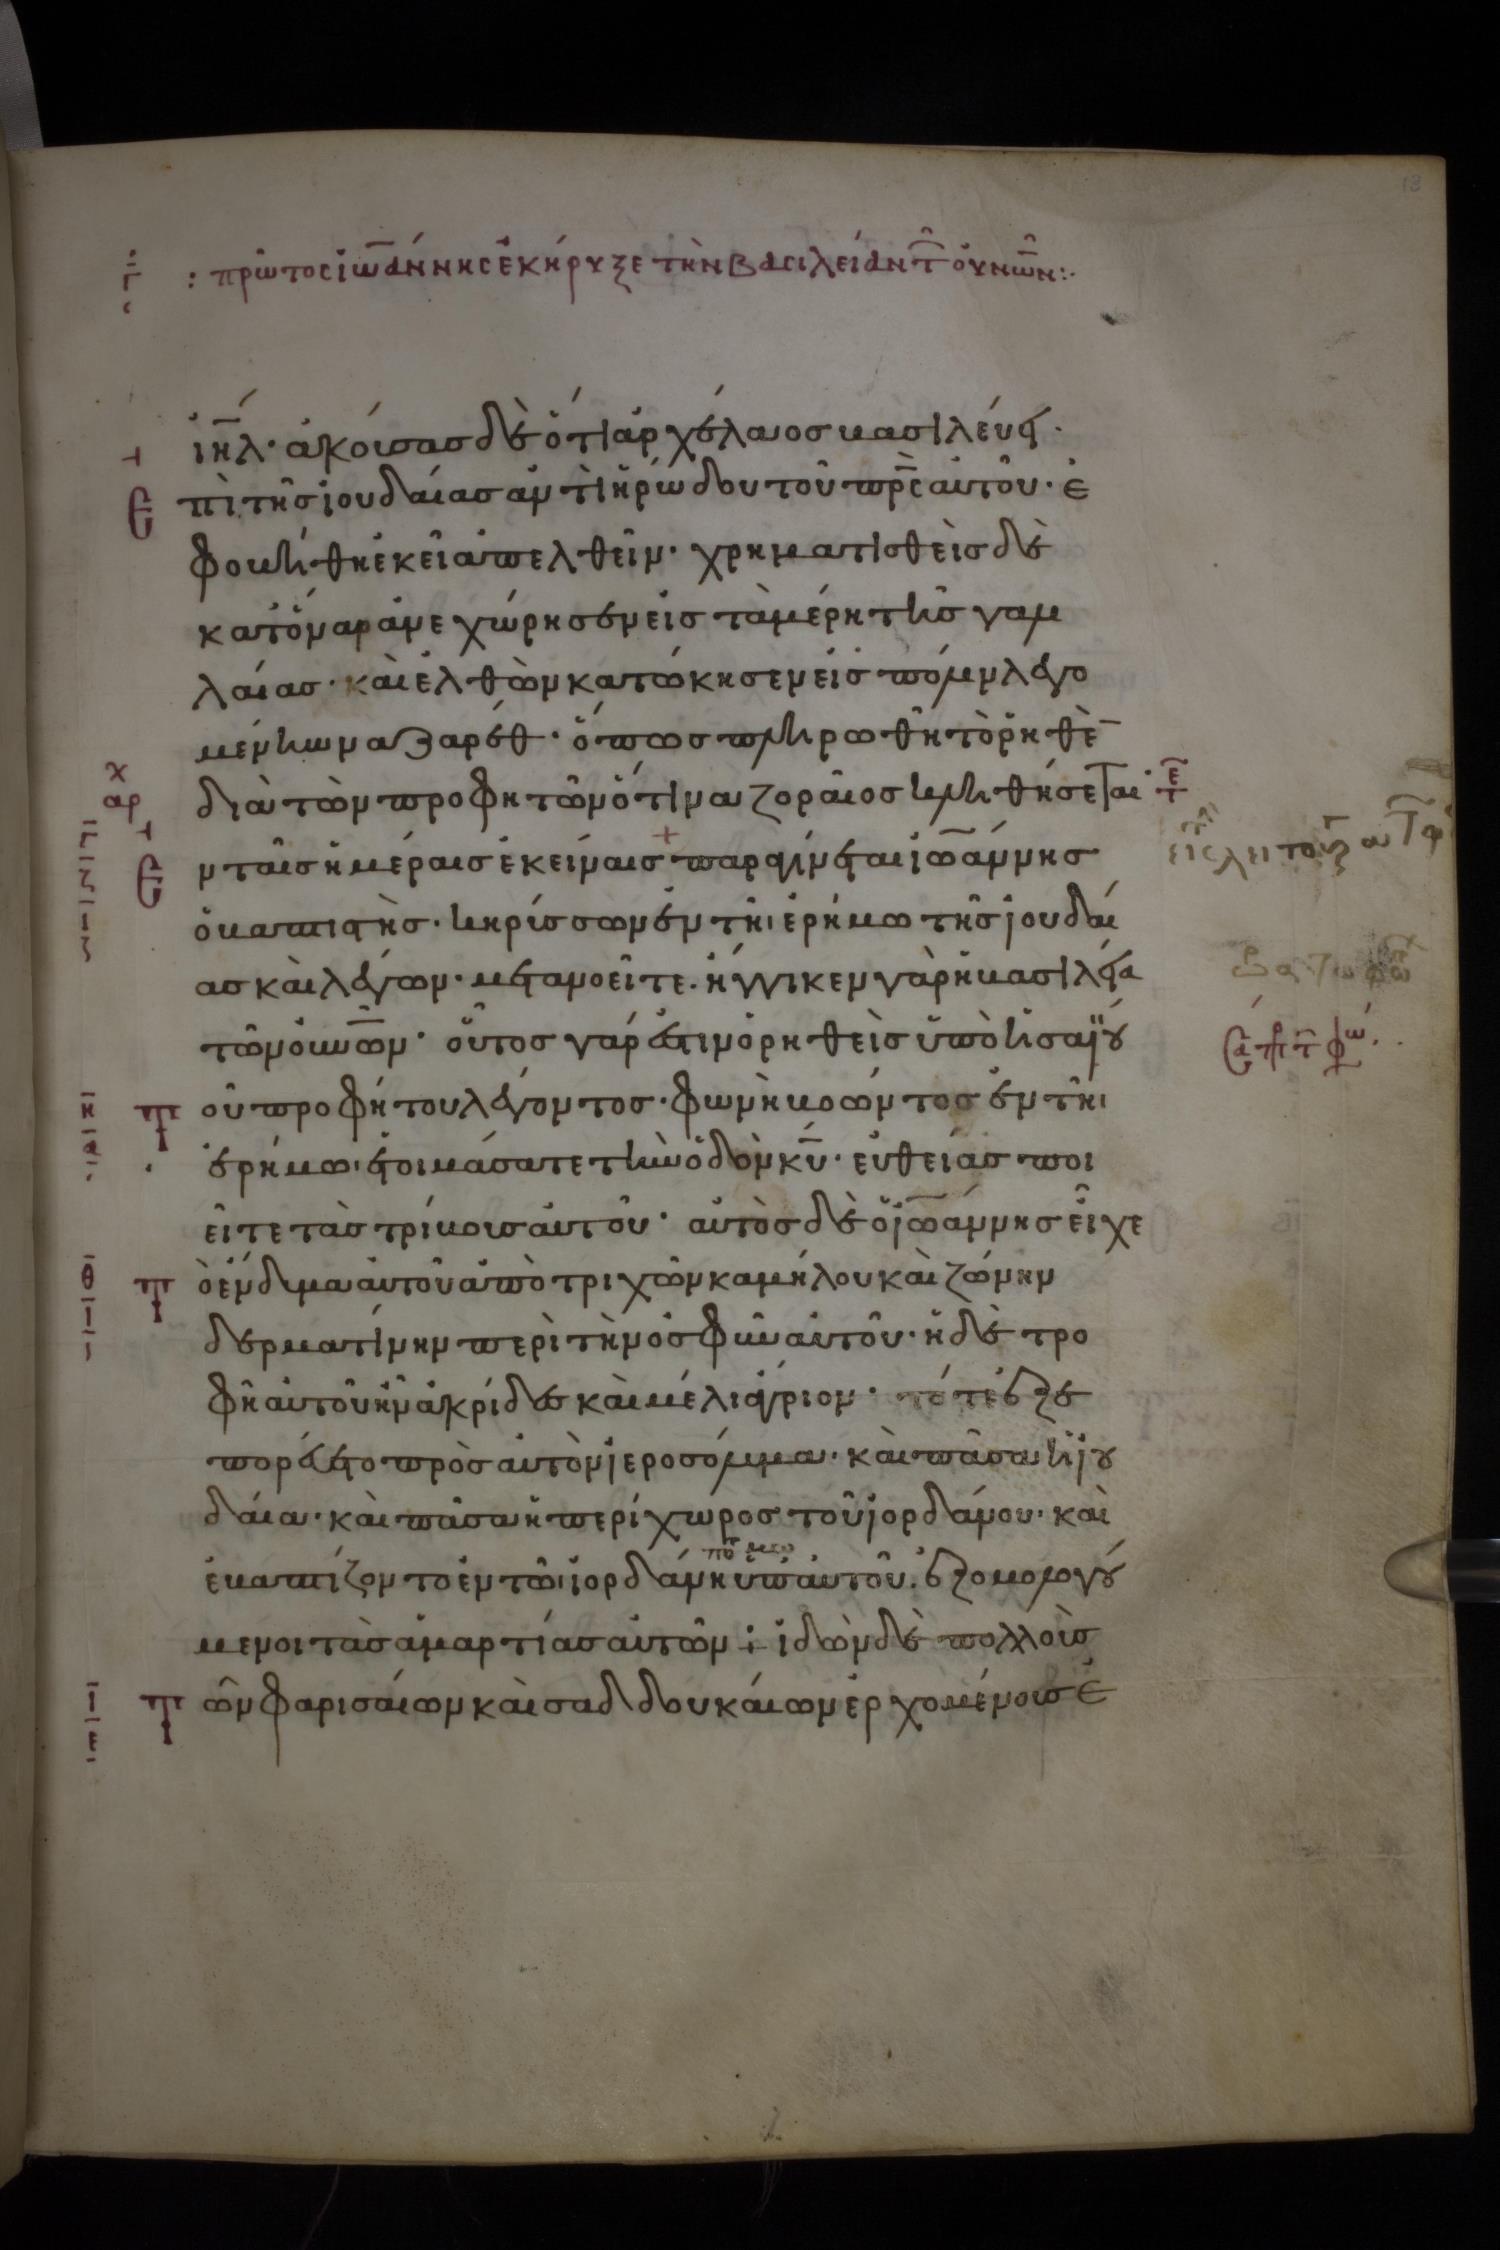 : πρῶτος ἰωάννης ἐκήρυξε τὴν βασιλείαν τ οὐνων :.
ἰηλ· ἀκούσας δὲ ὅτι ἀρχέλαος βασιλεύει·
Ε πὶ τῆς ἰουδαίας ἀντὶ ἡρώδου τοῦ πρς αὐτοῦ· ἐ
φοβήθη ἐκεῖ ἀπελθεῖν· χρηματισθεὶς δὲ
κατ' ὄναρ ἀνεχώρησεν εἰς τὰ μέρη τῆς γαλι
λαίας· καὶ ἐλθὼν κατώκησεν εἰς πόλιν λεγο
μένην ναζαρέθ· ὅπως πληρωθῆ τὸ ῥηθὲ
διὰ τῶν προφητῶν ὅτι ναζοραῖος κληθήσεται·
Ε ν ταῖς ἡμέραις ἐκείναις παραγίνεται ἰωάννης
ὁ βαπτιστὴς· κηρύσσων ἐν τῆι ἐρήμω τῆς ἰουδαί
ας καὶ λέγων· μετανοεῖτε· ἤγγικεν γὰρ ἡ βασιλεία
τῶν οὐνων· οὗτος γάρ ἐστιν ὁ ῥηθεὶς ὑπὸ ἡσαΐου
Τ οῦ προφήτου λέγοντος· φωνὴ βοῶντος ἐν τῆι
ἐρήμω· ἑτοιμάσατε τὴν ὁδὸν κυ· εὐθείας ποι
εῖτε τὰς τρίβους αὐτοῦ· αὐτὸς δὲ ὁ ἰωάννης εἶχε
Τ ὸ ἔνδυμα αὐτοῦ ἀπὸ τριχῶν καμήλου καὶ ζώνην
δερματίνην περὶ τὴν ὀσφὺν αὐτοῦ· ἡ δὲ τρο
φὴ αὐτοῦ ἦν ἀκρίδες καὶ μέλι ἄγριον· τότε ἐξε
πορεύετο πρὸς αὐτὸν ἱεροσόλυμα· καὶ πᾶσα ἡ ἰου
δαία· καὶ πᾶσα ἡ περίχωρος τοῦ ἰορδάνου· καὶ
ἐβαπτίζοντο ἐν τῶι ἰορδάνη ὑπ' αὐτοῦ· ἐξομολογού
μενοι τὰς ἁμαρτίας αὐτῶν ⁘ ἰδὼν δὲ πολλοὺς
Τ ῶν φαρισαίων καὶ σαδδουκαίων ἐρχομένους ἐ